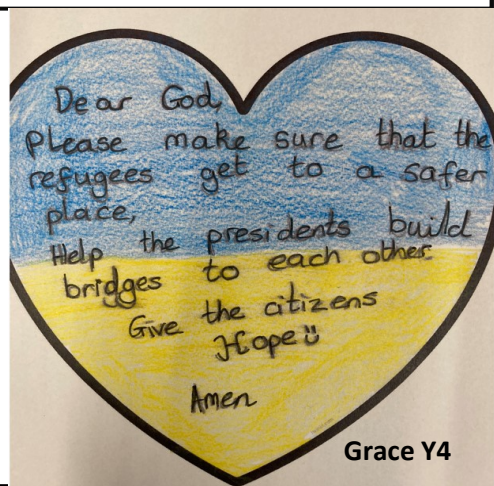 Dear God,
please make sure that the
refugees get to a safer
place,
Help the presidents build
bridges to each other.
Give the citizens
Hope ü
Amen
Grace Y4